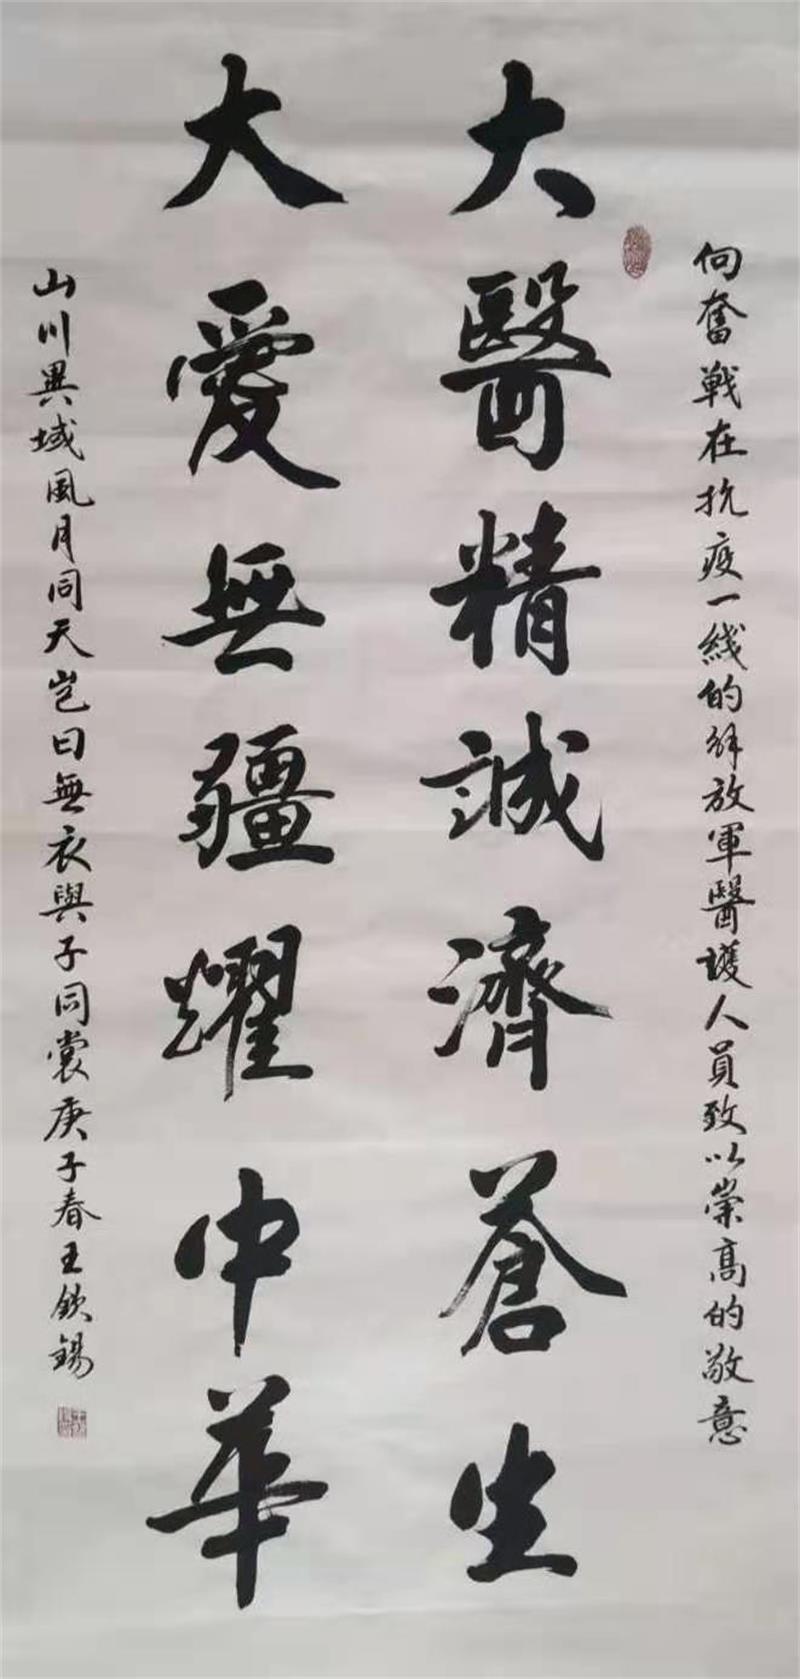 向奮戰在抗疫一綫的解放軍醫護人員致以崇高的敬意
大醫精誠濟蒼生
大愛無疆耀中華
山川異域風月同天豈曰無衣與子同裳庚子春王欽錫